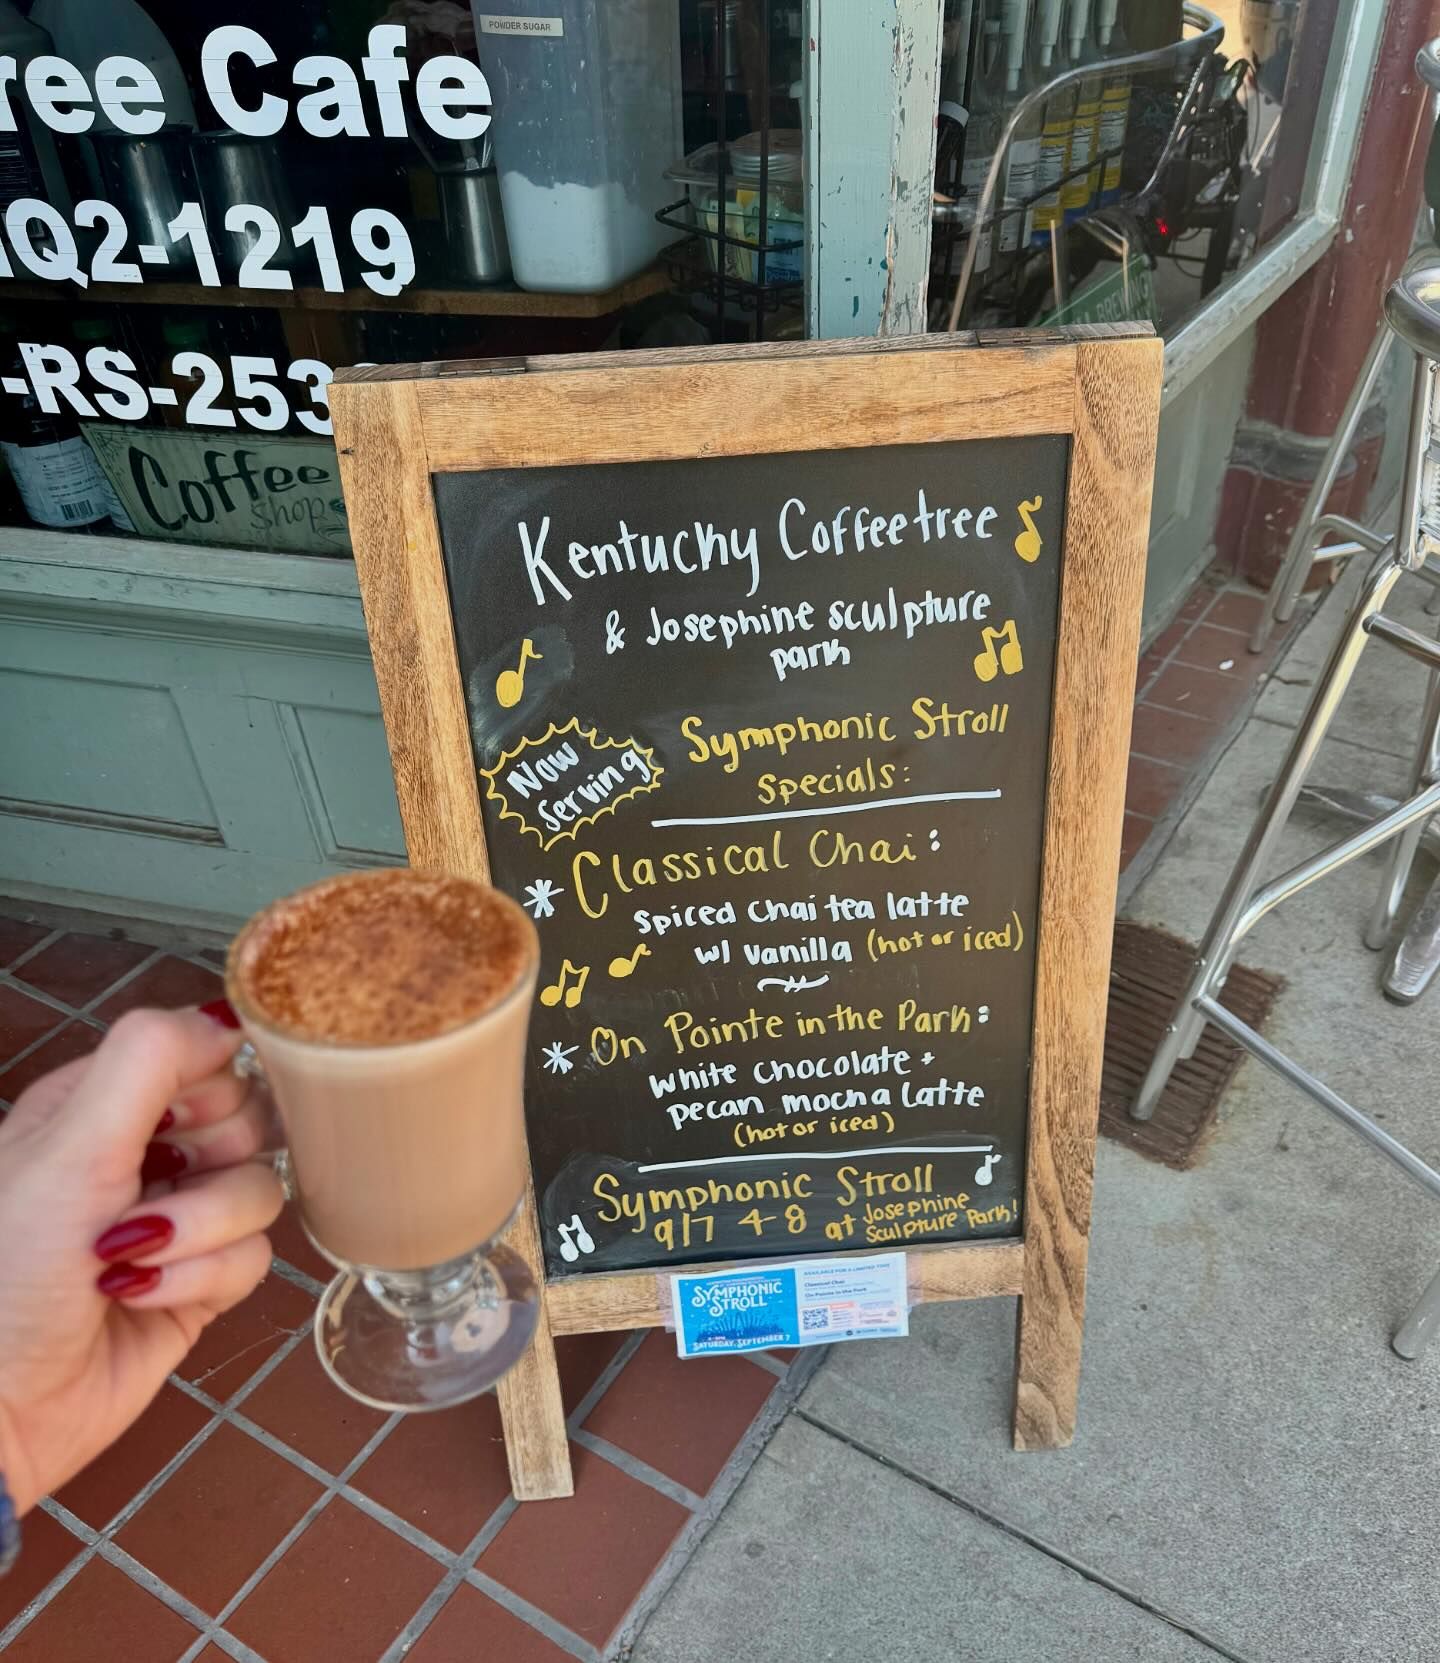 POWDER SUGAR
ree Cafe
Q2-1219
-RS-253
Coffee
Shop
Kentucky Coffeetree
& Josephine sculpture
park
Now
Serving
Symphonic Stroll
specials:
* Classical Chai:
spiced chai tea latte
w/ vanilla (hot or iced)
* On Pointe in the Park:
white chocolate +
pecan mocha latte
(hot or iced)
Symphonic Stroll
9/7 4-8 at Josephine
Sculpture Park!
SYMPHONIC
STROLL
SATURDAY, SEPTEMBER 7
AVAILABLE FOR A LIMITED TIME
Classical Chai
On Pointe in the Park